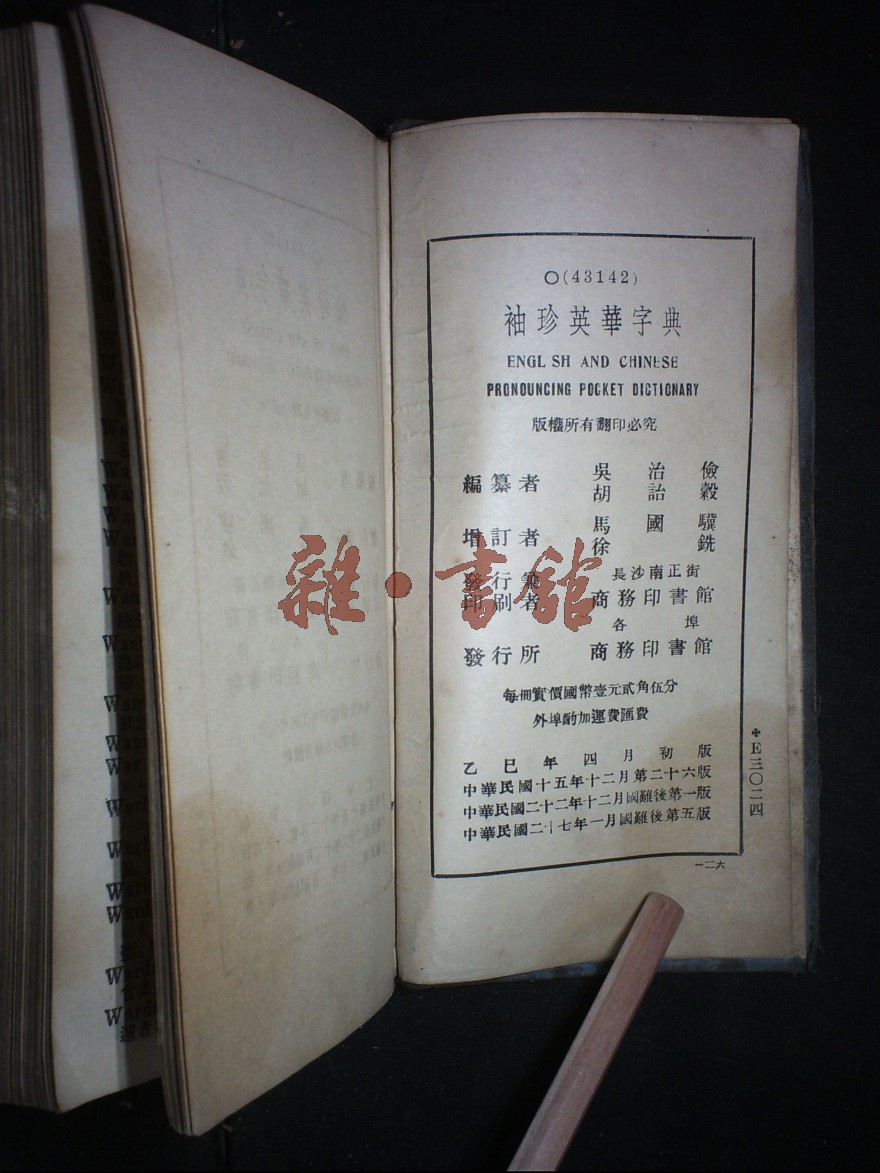 ○(43142)
袖珍英華字典
ENGL SH AND CHINESE
PRONOUNCING POCKET DICTIONARY
版權所有翻印必究
編纂者 吳治儉
胡詒穀
增訂者 馬國驥
徐銑
發行兼 長沙南正街
印刷者 商務印書館
各埠
發行所 商務印書館
每冊實價國幣壹元貳角伍分
外埠酌加運費匯費
乙巳年四月初版
中華民國十五年十二月第二十六版
中華民國二十二年十二月國難後第一版
中華民國二十七年一月國難後第五版
E三〇二四
一二六
雜·書館